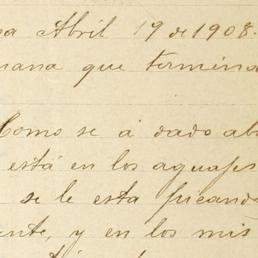 sa Abril 19 de 1908.
mana que termina
Como se á dado ab
está en los aguajes
se le esta picando
ente, y en los mis